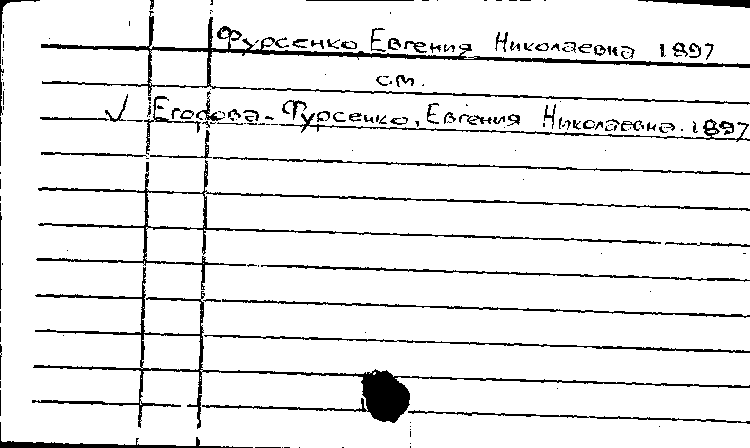 Фурсенко Евгения Николаевна 1897
см.
√ Егорова-Фурсенко, Евгения Николаевна. 1897